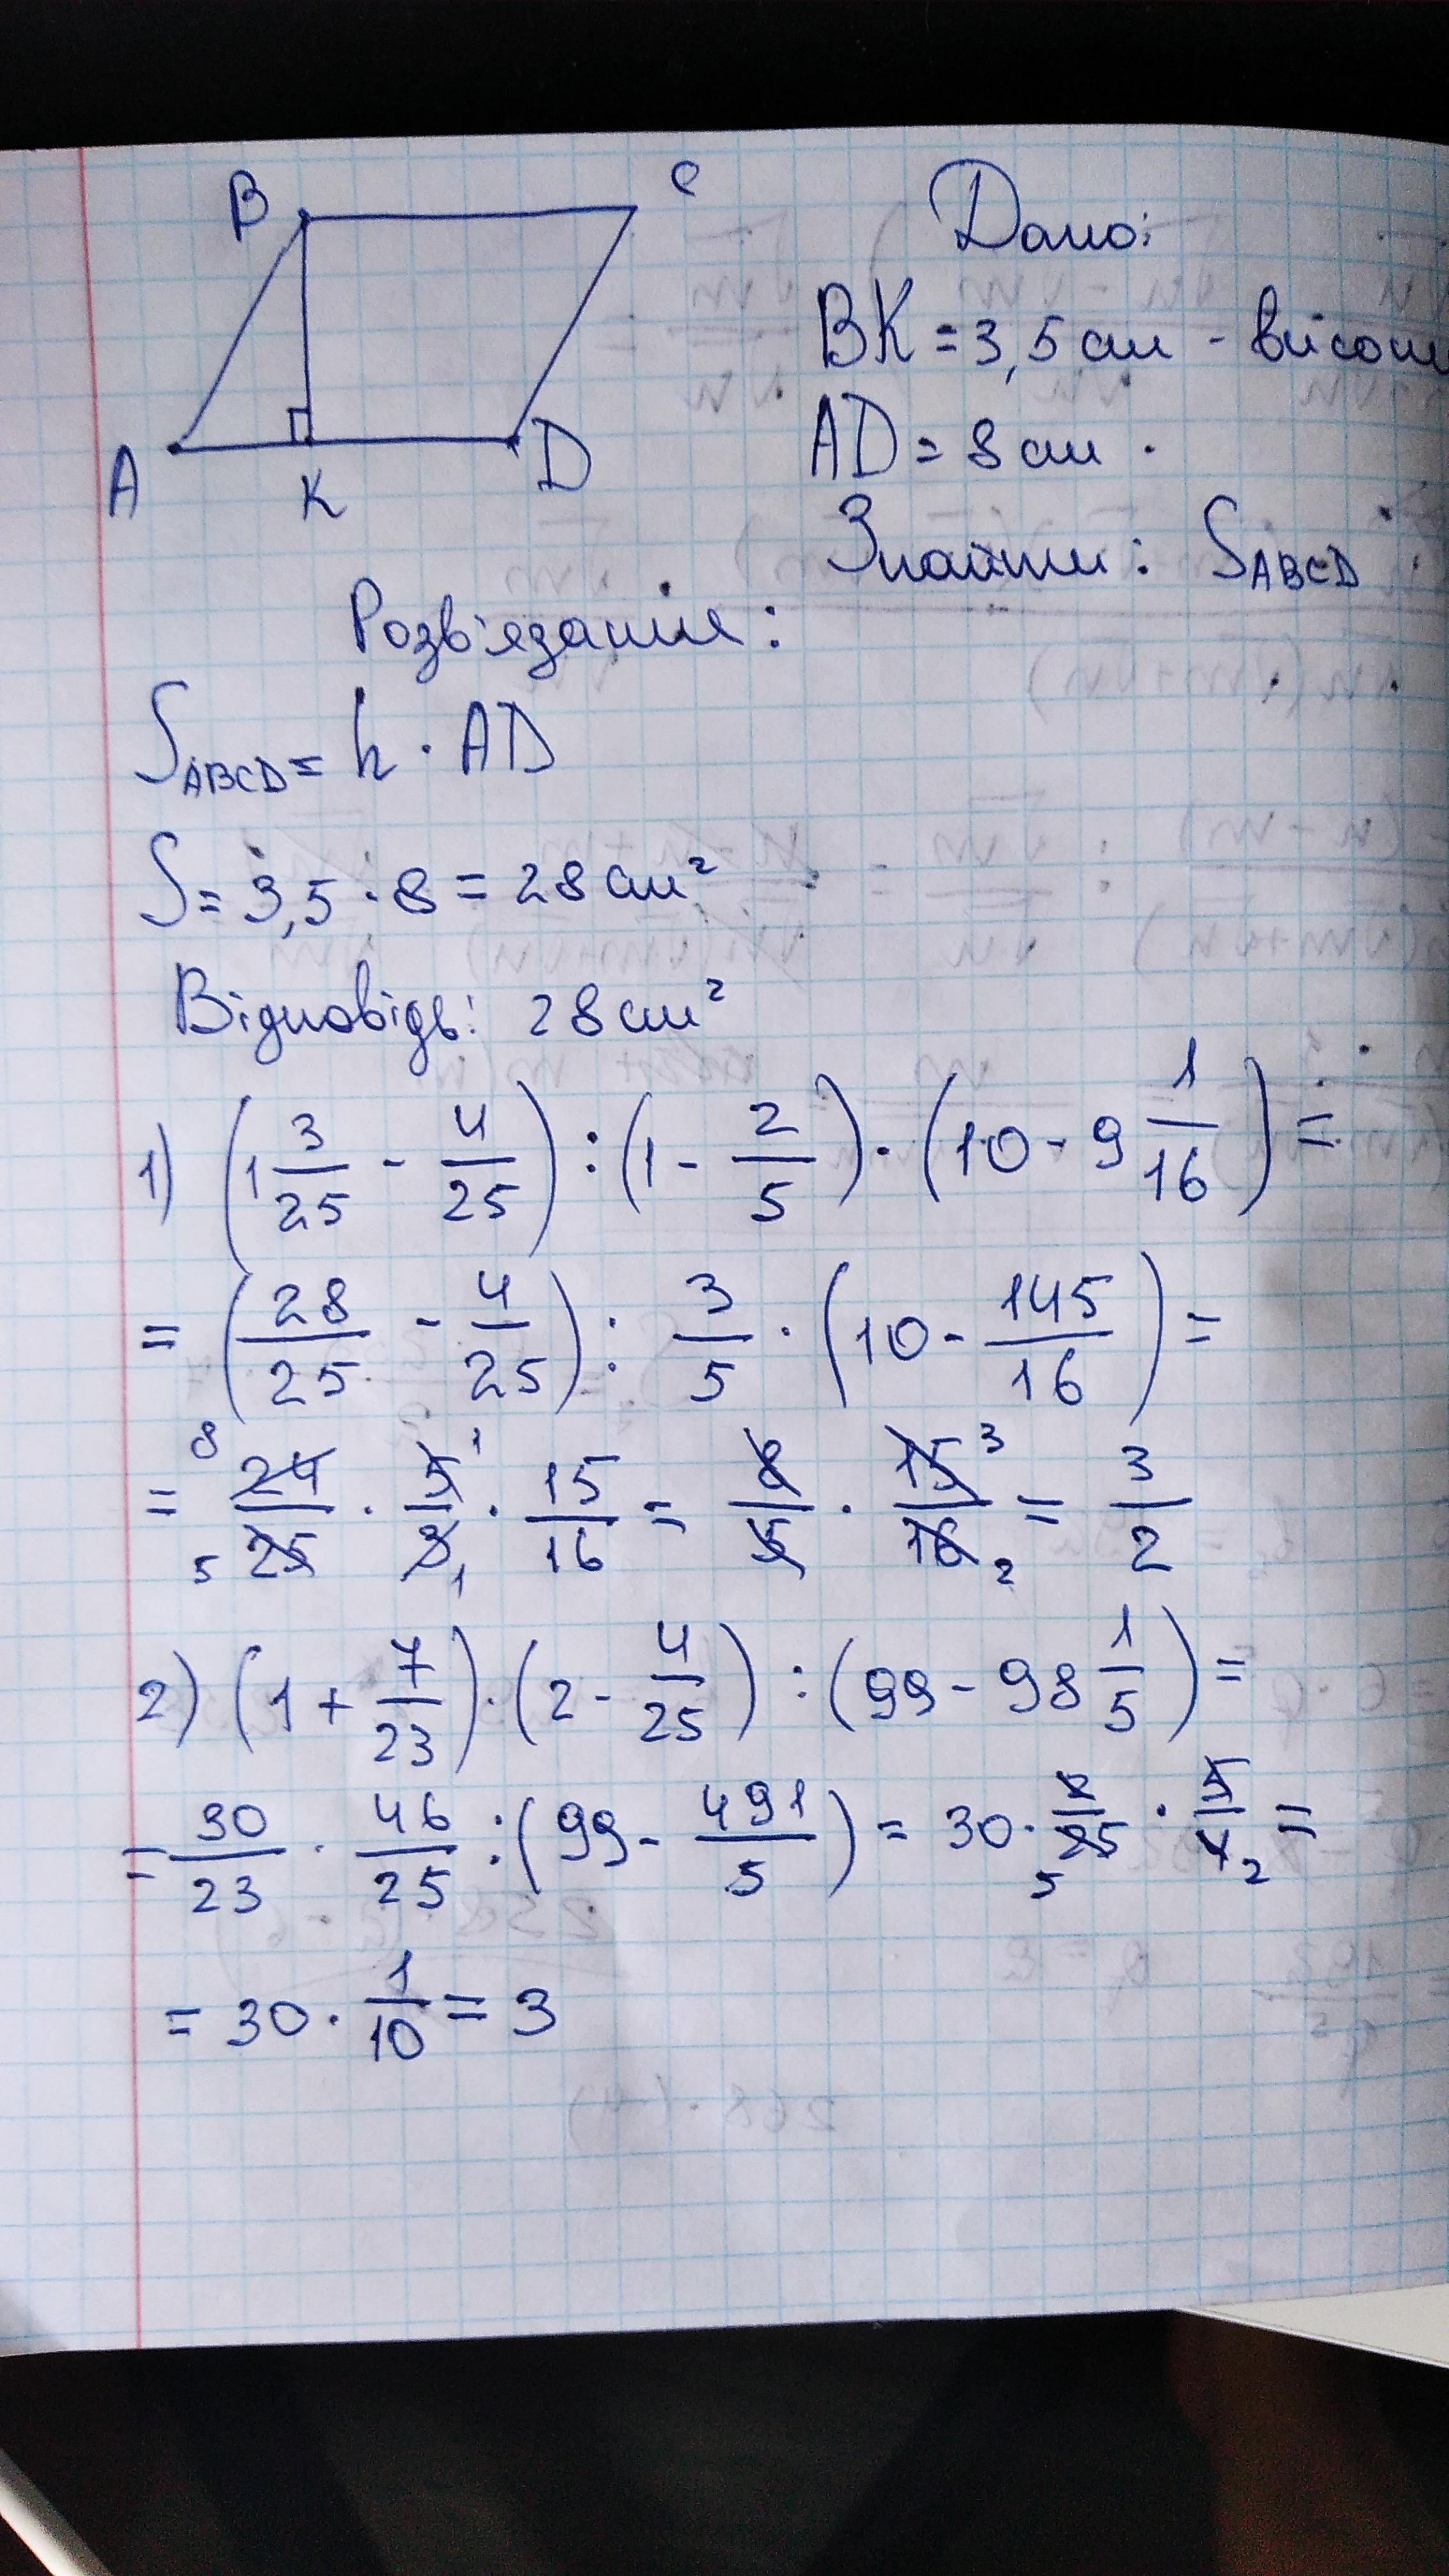 B C
A K D
Дано:
BK = 3,5 см - висот
AD = 8 см.
Знайти: S_ABCD
Розв'язання:
S_ABCD = h · AD
S = 3,5 · 8 = 28 см²
Відповідь: 28 см²
1) (1 3/25 - 4/25) : (1 - 2/5) · (10 - 9 1/16) =
= (28/25 - 4/25) : 3/5 · (10 - 145/16) =
= 8 24/25 5 · 5 1/3 1 · 15/16 = 8/5 · 15 3/16 2 = 3/2
2) (1 + 7/23) · (2 - 4/25) : (99 - 98 1/5) =
= 30/23 · 46/25 : (99 - 491/5) = 30 · 2/25 5 · 5/4 2 =
= 30 · 1/10 = 3